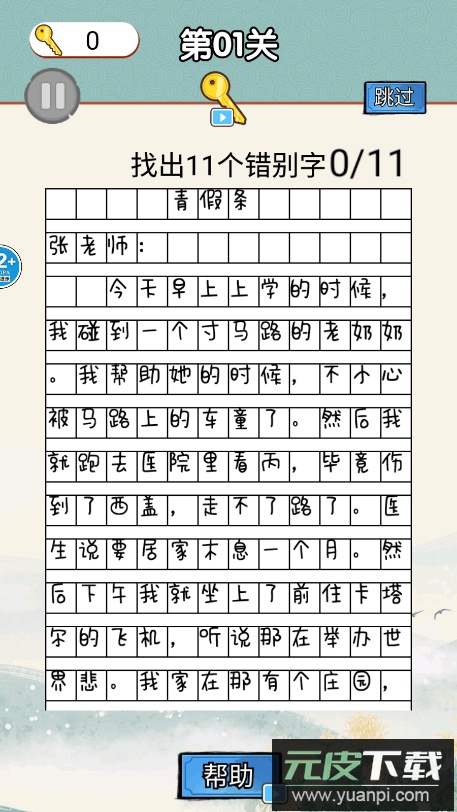 0
第01关
跳过
找出11个错别字0/11
青假条
张老师：
今天早上上学的时候，
我碰到一个寸马路的老奶奶
。我帮助她的时候，不小心
被马路上的车童了。然后我
就跑去医院里看丙，毕竟伤
到了西盖，走不了路了。医
生说要居家木息一个月。然
后下午我就坐上了前住卡塔
尔的飞机，听说那在举办世
界悲。我家在那有个庄园，
帮助
元皮下载
www.yuanpi.com